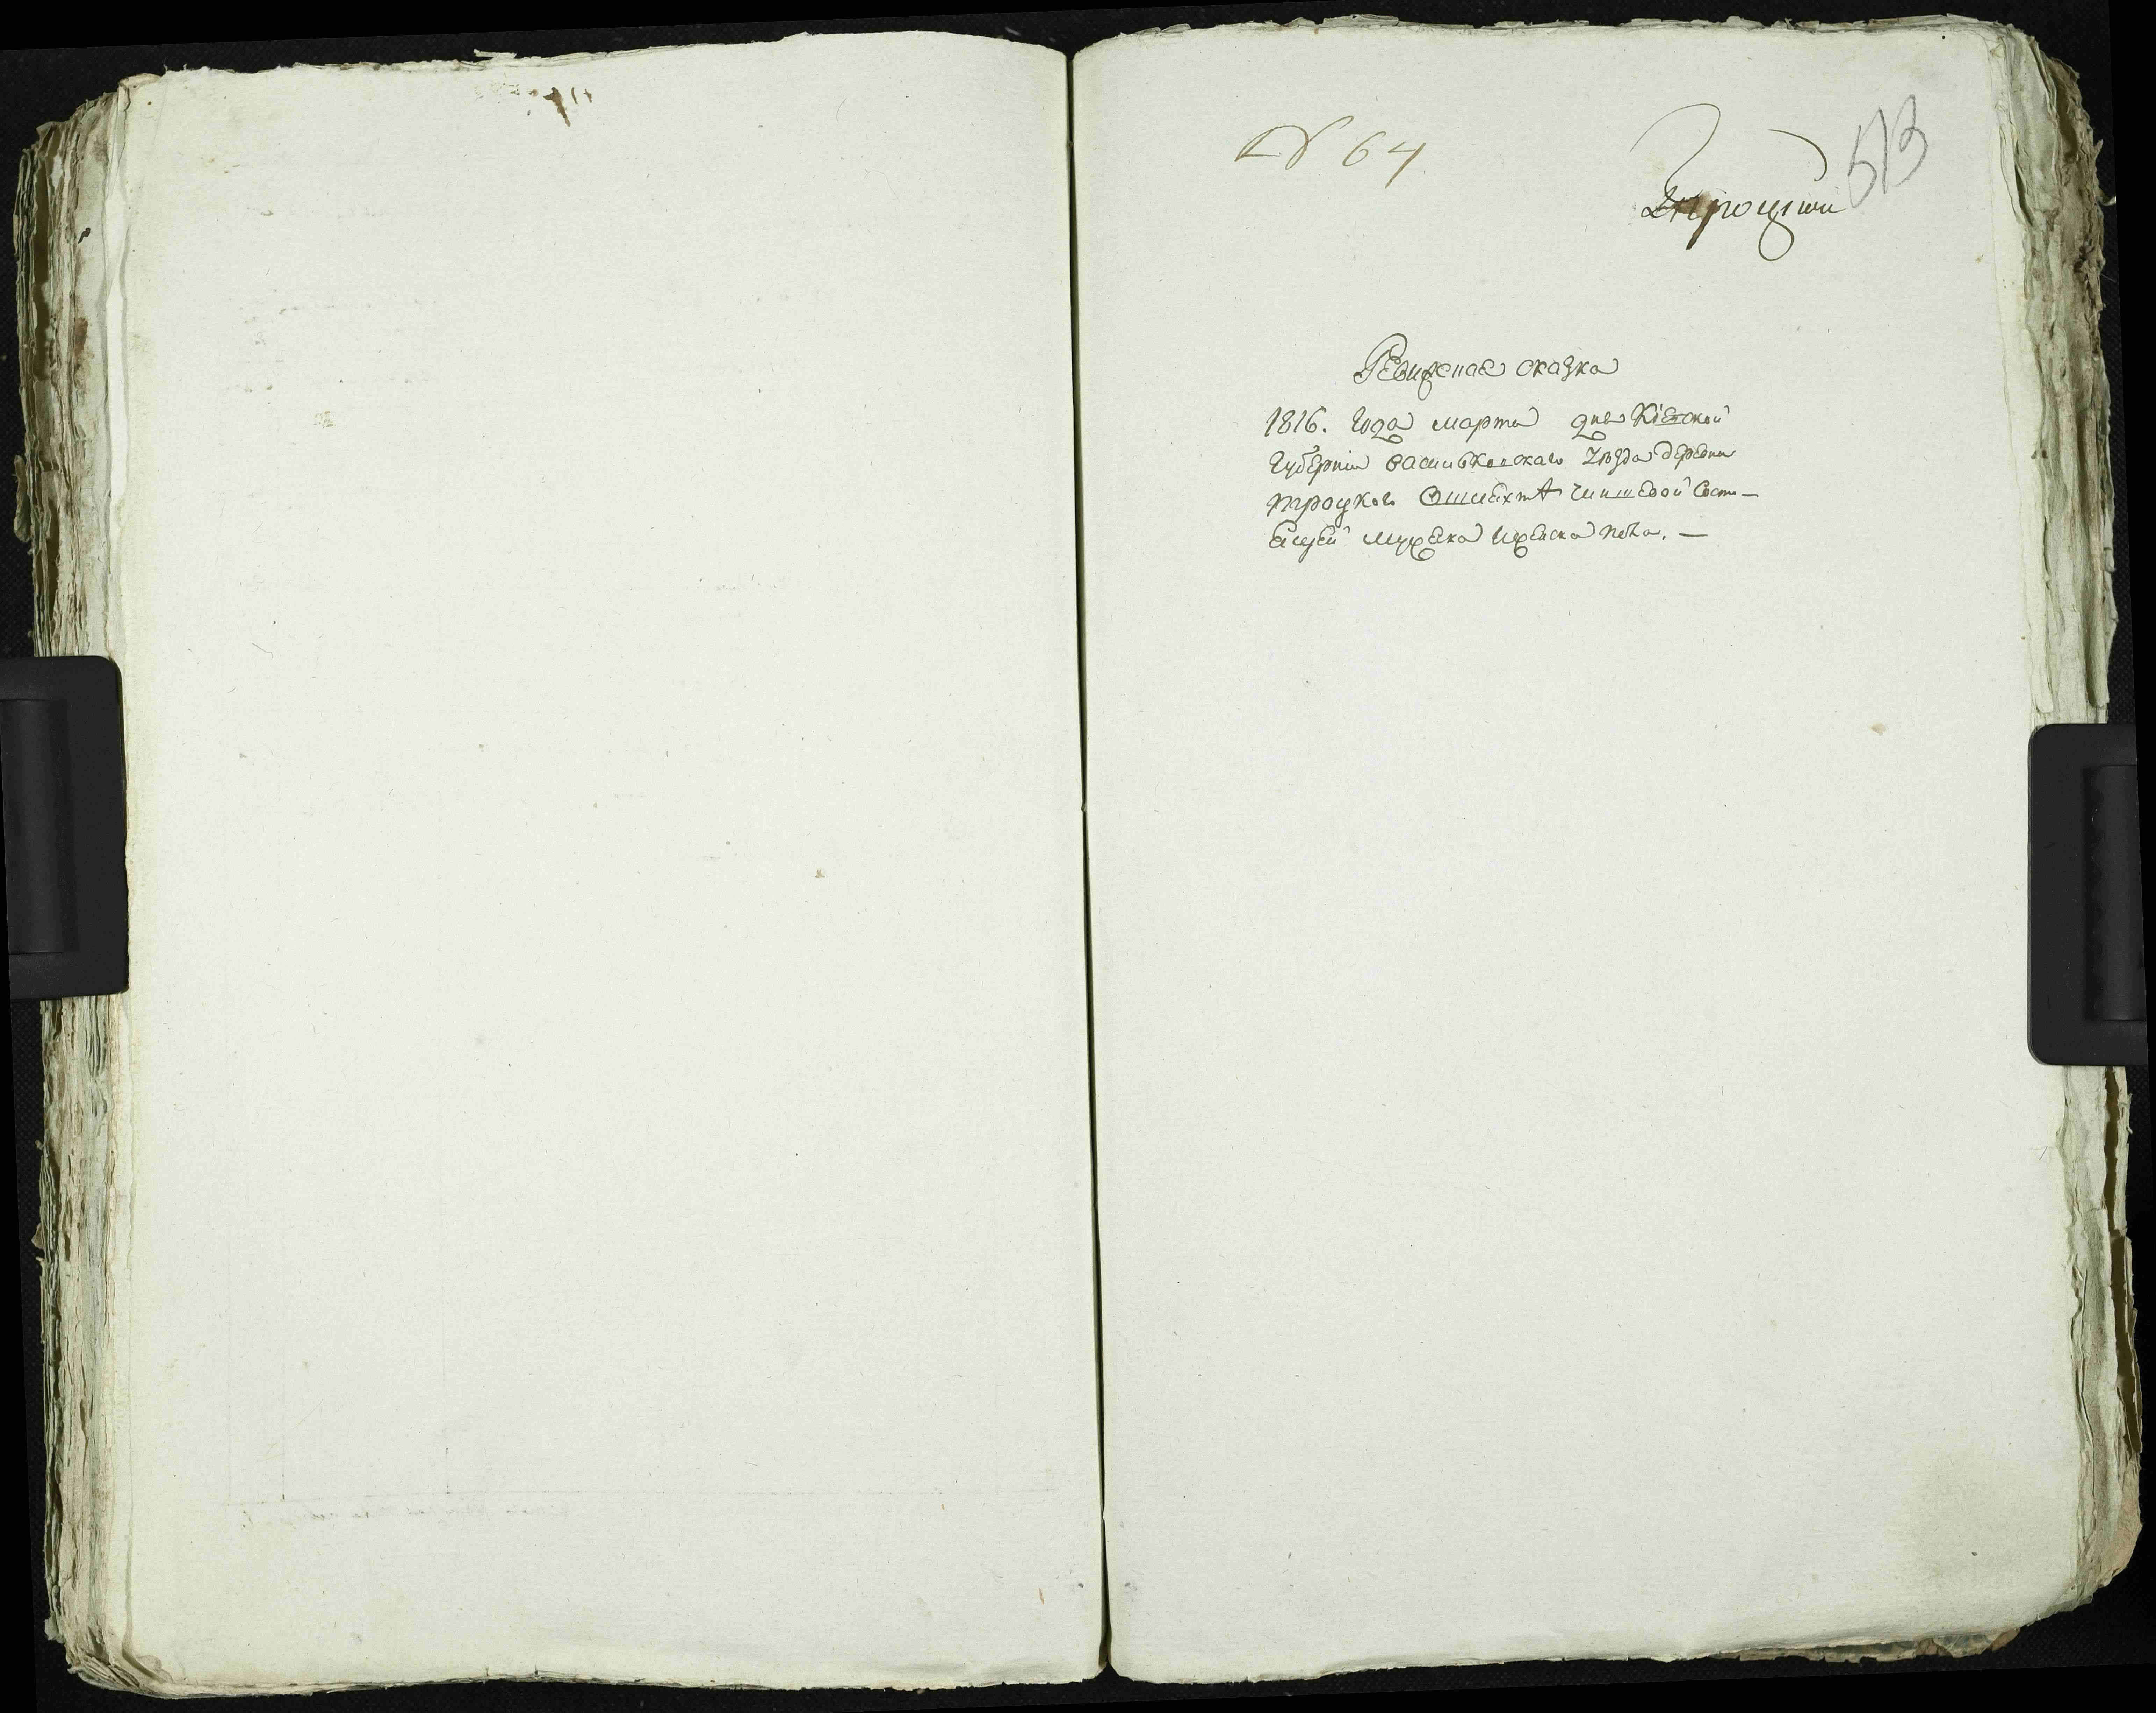 № 64
513
Ревижская сказка
1816. года марта дня Кіевской
Губернiи васильковскаго уезда деревни
троцкого Ошляхте чиншевой Состо-
ящей мужеска иженска пола. —